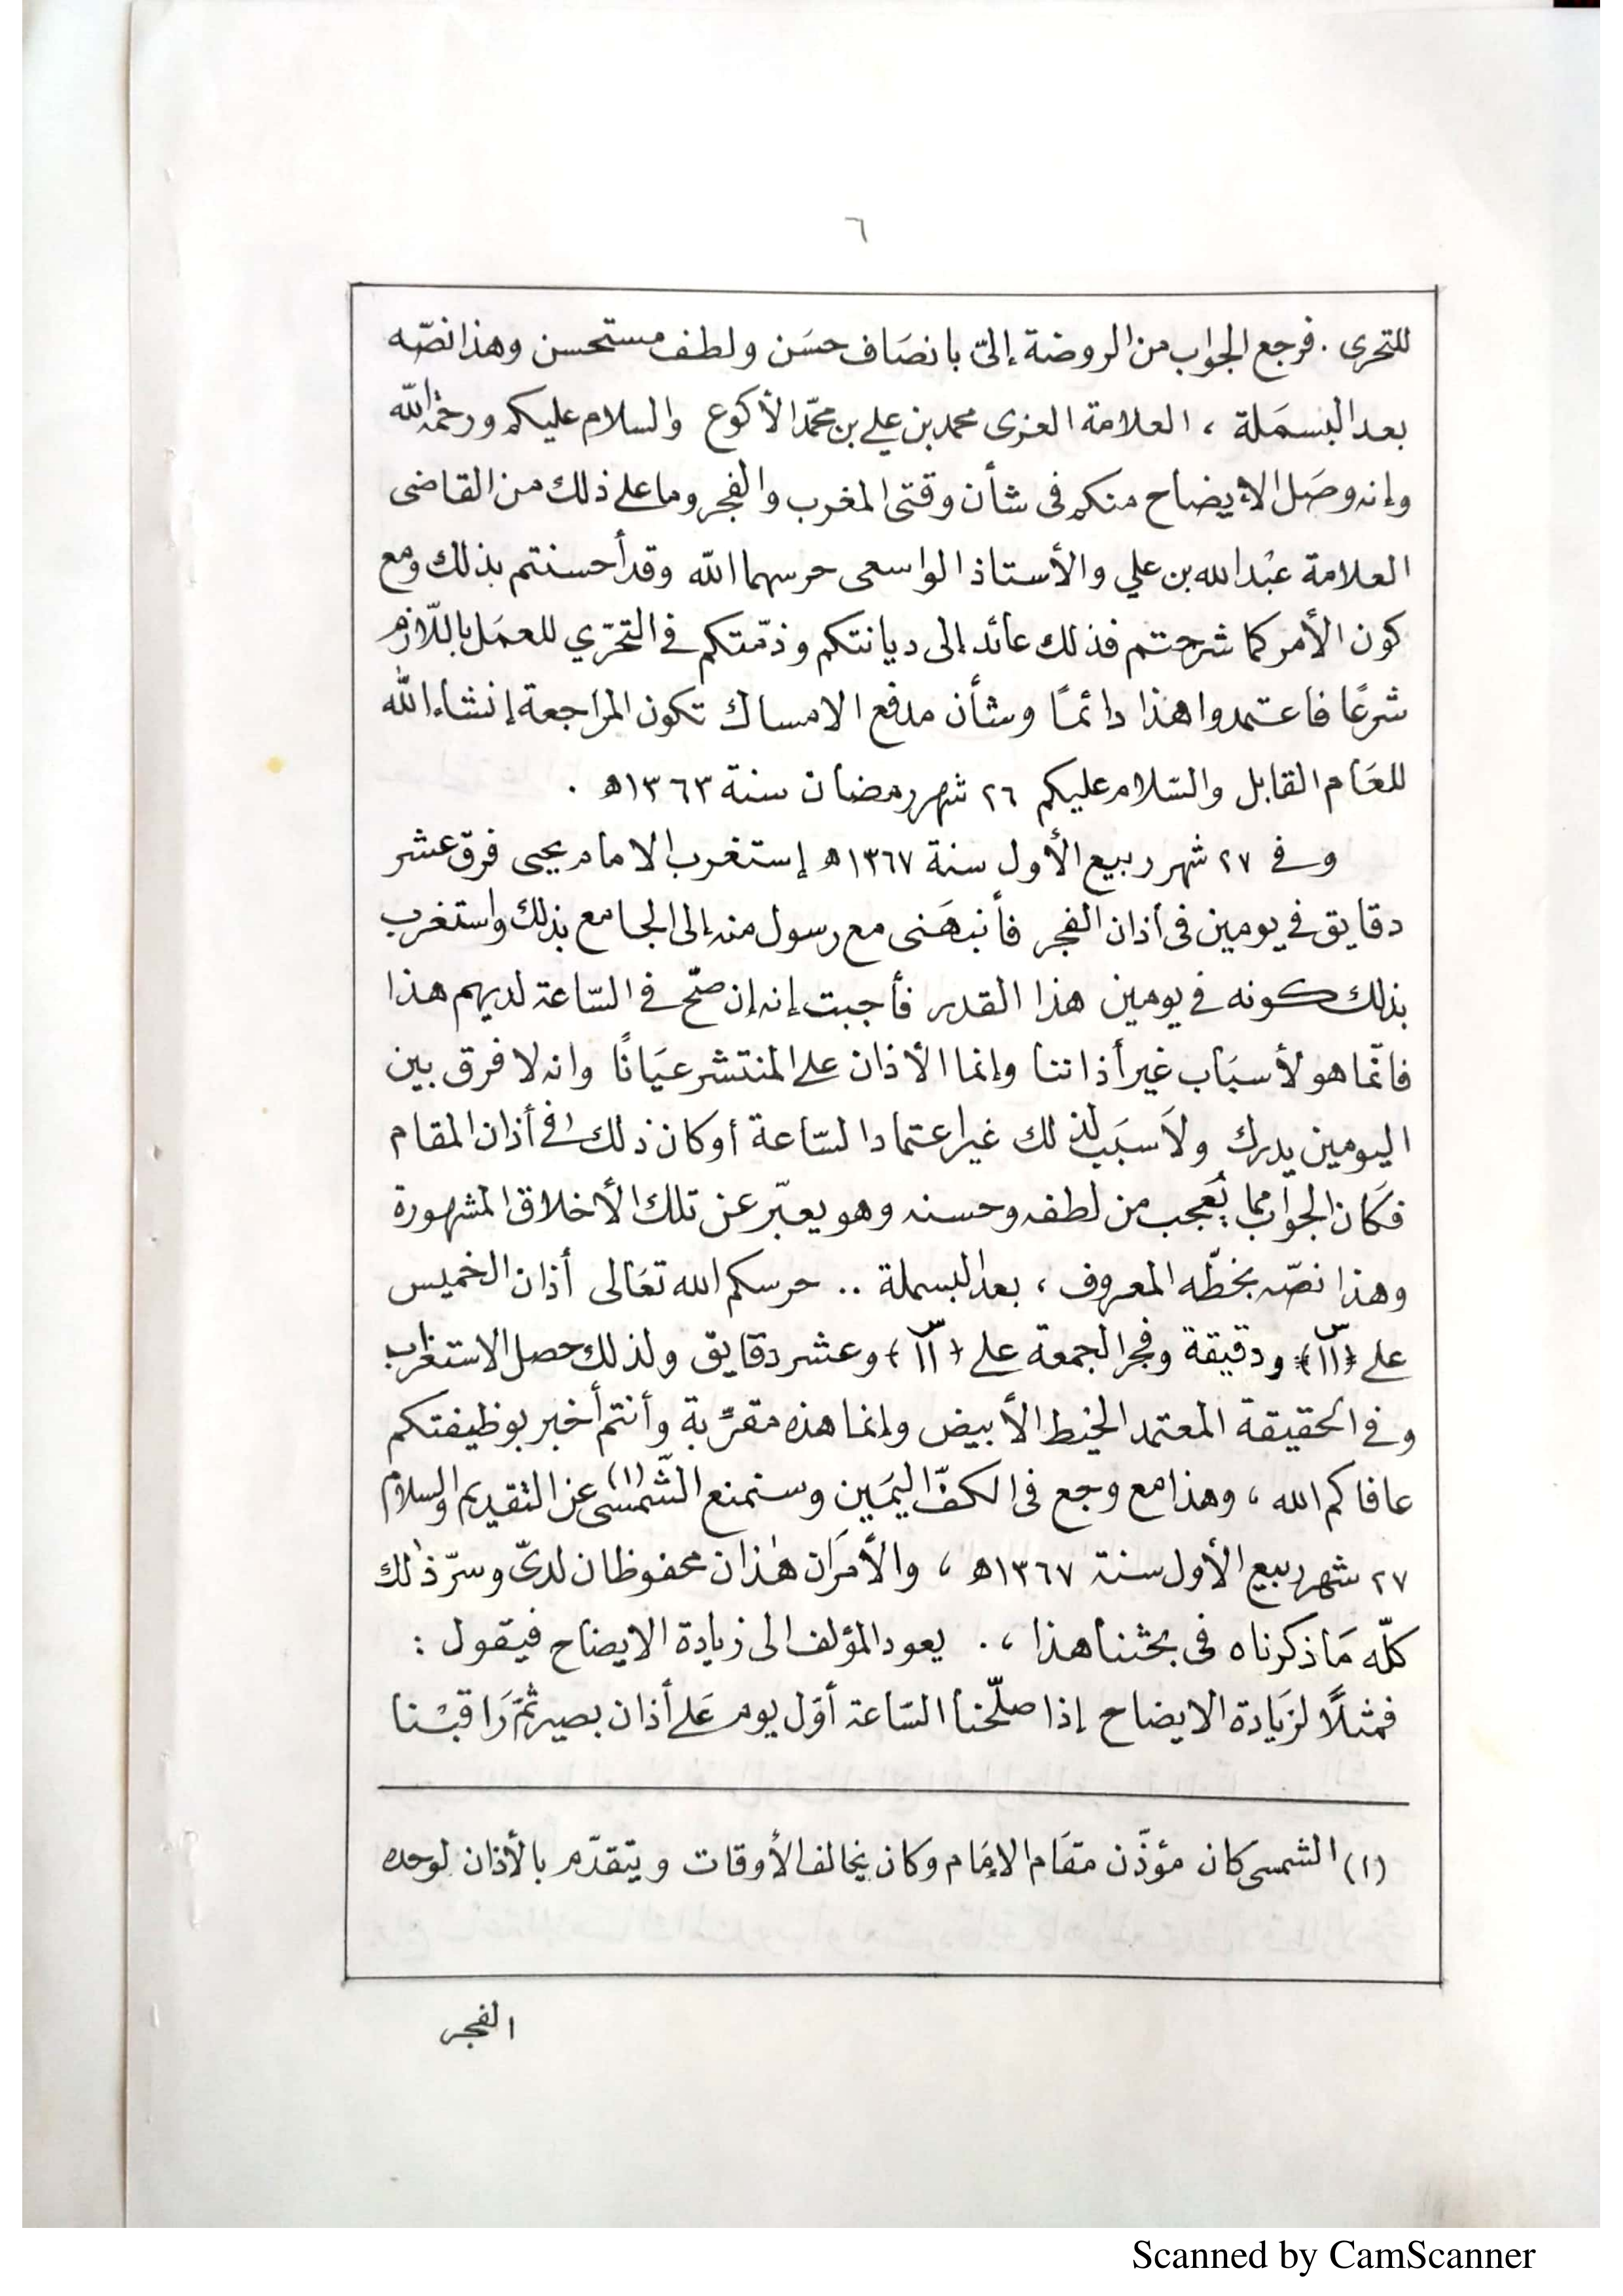 ٦
للتحرى . فرجع الجواب من الروضة إلىّ بانصَاف حسَن ولطف مستحسن وهذا نصّه
بعد البسمَلة ، العلامة العزى محمد بن علي بن محمّد الأكوع والسلام عليكم ورحمة الله
وإنه وصَل الإيضاح منكم فى شأن وقتى المغرب والفجر وما على ذلك من القاضى
العلامة عبْد الله بن علي والأستاذ الواسعى حرسهما الله وقد أحسنتم بذلك ومع
كون الأمر كما شرحتم فذلك عائد إلى ديانتكم وذمّتكم في التحرّي للعمَل باللّازم
شرعًا فاعتمدوا هذا دائمًا وشأن مدفع الامساك تكون المراجعة إنشاء الله
للعَام القابل والسّلام عليكم ٢٦ شهر رمضان سنة ١٣٦٣ه .
وفي ٢٧ شهر ربيع الأول سنة ١٣٦٧ه إستغرب الامام يحيى فرق عشر
دقايق في يومين فى أذان الفجر فأنبهَنى مع رسول منه إلى الجامع بذلك واستغرب
بذلك كونه في يومين هذا القدر فأجبت إنه إن صحّ في السّاعة لديهم هذا
فانّما هو لأسبَاب غير أذاننا وإنما الأذان على المنتشر عيَانًا وانه لا فرق بين
اليومين يدرك ولاَ سبَب لذلك غير اعتماد السّاعة أو كان ذلك في أذان المقام
فكَان الجواب مما يُعجب من لطفه وحسنه وهو يعبّر عن تلك الأخلاق المشهورة
وهذا نصّه بخطّه المعروف ، بعد البسملة .. حرسكم الله تعَالى أذان الخميس
على (١١س) ودقيقة وفجر الجمعة على (١١س) وعشر دقايق ولذلك حصل الاستغراب
وفي الحقيقة المعتمد الخيط الأبيض وإنما هذه مقرّبة وأنتم أخبر بوظيفتكم
عافاكم الله ، وهذا مع وجع فى الكفّ اليمَين وسنمنع الشّمسى(١) عن التقديم والسلام
٢٧ شهر ربيع الأول سنة ١٣٦٧ه ، والأمرَان هٰذان محفوظان لدىّ وسرّ ذٰلك
كلّه مَا ذكرناه فى بحثنا هذا ،. يعود المؤلف الى زيادة الايضاح فيقول :
فمثلًا لزيَادة الايضاح إذا صلّحنا السّاعة أوّل يوم عَلى أذان بصير ثمّ رَاقبْنا
(١) الشمسى كان مؤذّن مقَام الإمَام وكان يخالف الأوقات ويتقدّم بالأذان لوحده
الفجر
Scanned by CamScanner